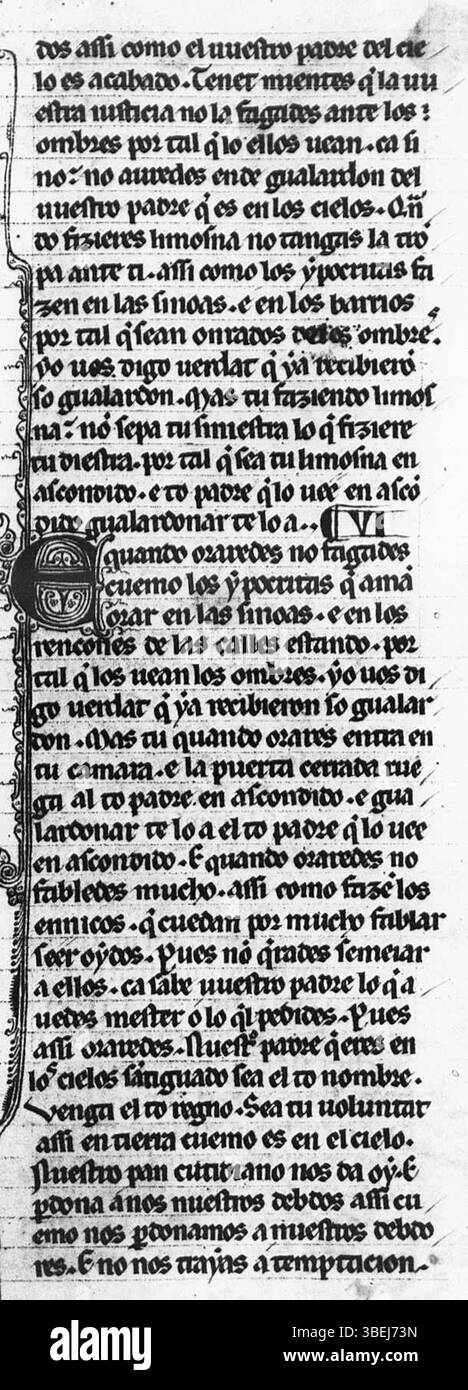 dos assi como el uuestro padre del cie
lo es acabado. Tenet mientes q̃ la uu
estra iusticia no la fagades ante los
ombres por tal q̃ lo ellos uean. ca si
no: no auredes ende gualardon del
uuestro padre q̃ es en los cielos. Qñ
do fizieres limosna no tangas la trõ
pa ante ti. assi como los ypocritas fa
zen en las sinoas. e en los barrios
por tal q̃ sean onrados delos ombres.
yo uos digo uerdat q̃ ya recibierõ
so gualardon. Mas tu faziendo limos
na: nõ sepa tu siniestra lo q̃ fiziere
tu diestra. por tal q̃ sea tu limosna en
ascondido. e to padre q̃ lo uee en ascõ
dido gualardonar te lo a. VI
E quando oraredes no fagades
cuemo los ypocritas q̃ amã
orar en las sinoas. e en los
rencones de las calles estando. por
tal q̃ los uean los ombres. yo uos di
go uerdat q̃ ya recibieron so gualar
don. Mas tu quando orares entra en
tu camara. e la puerta cerrada rue
ga al to padre en ascondido. e gua
lardonar te lo a el to padre q̃ lo uee
en ascondido. E quando oraredes no
fabledes mucho. assi como fazẽ los
ennicos. q̃ cuedan por mucho fablar
seer oydos. Pues nõ q̃rades semeiar
a ellos. ca sabe uuestro padre lo q̃ a
uedes mester o lo q̃l pedides. Pues
assi oraredes. Nuestº padre q̃ eres en
los cielos sãtiguado sea el to nombre.
Venga el to regno. Sea tu uoluntat
assi en tierra cuemo es en el cielo.
Nuestro pan cutidiano nos da oy. E
ꝑdona a nos nuestros debdos assi cu
emo nos ꝑdonamos a nuestros debdo
res. E no nos trayas a temptacion.
alamy
Image ID: 3BEJ73N
www.alamy.com